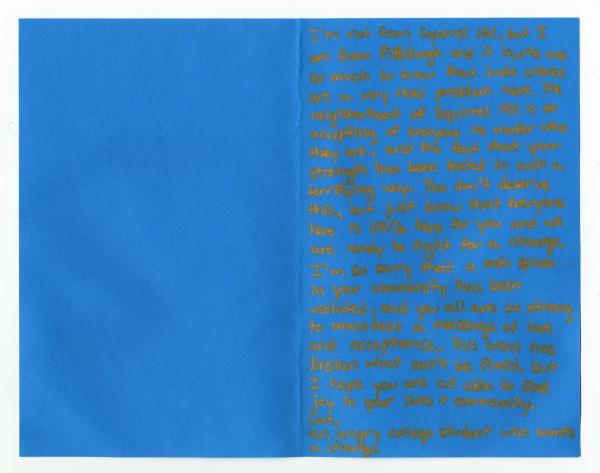 I'm not from Squirrel Hill, but I
am from Pittsburgh and it hurts me
so much to know that hate crimes
are a very real problem here. The
neighborhood of Squirrel Hill is so
accepting of everyone no matter who
they are, and the fact that your
strength has been tested in such a
terrifying way. You don't deserve
this, but just know that everyone
here is 100% here for you and we
are ready to fight for a change.
I'm so sorry that a safe space
in your community has been
violated, and you all are so strong
to maintain a message of love
and acceptance. This event has
broken what can't be fixed, but
I hope you are all able to find
joy in your lives + community.
Love,
an angry college student who wants
a change